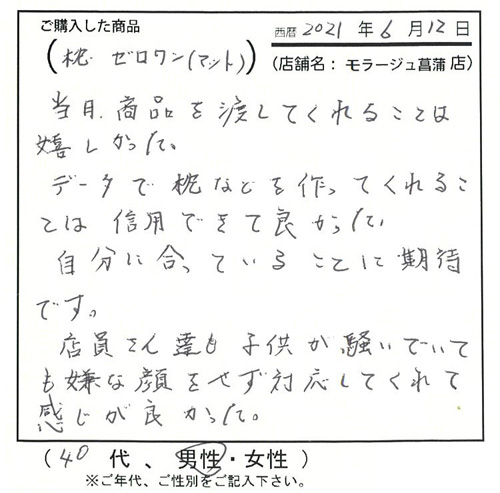 ご購入した商品
西暦 2021 年 6 月 12 日
(枕 ゼロワン(マット))
(店舗名: モラージュ菖蒲 店)
当日、商品を渡してくれることは
嬉しかった。
データで枕などを作ってくれるこ
とは信用できて良かった。
自分に合っていることに期待
です。
店員さん達も子供が騒いでいて
も嫌な顔をせず対応してくれて
感じが良かった。
(40 代、男性・女性)
※ご年代、ご性別をご記入下さい。